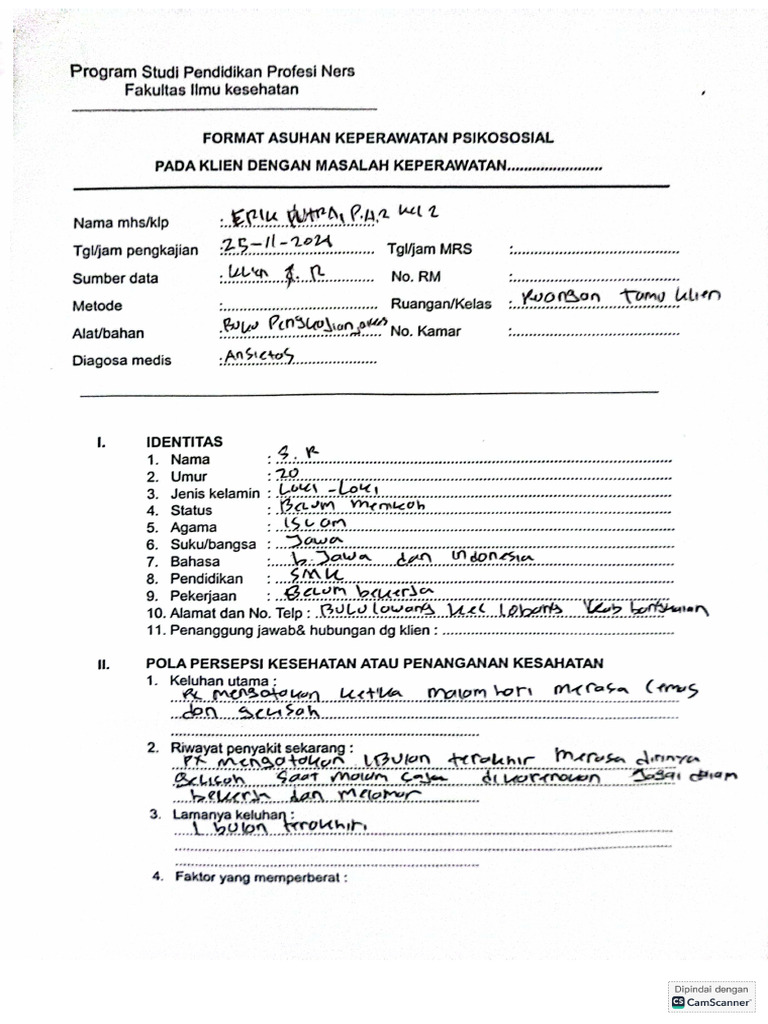 Program Studi Pendidikan Profesi Ners
Fakultas Ilmu kesehatan
FORMAT ASUHAN KEPERAWATAN PSIKOSOSIAL
PADA KLIEN DENGAN MASALAH KEPERAWATAN........................
Nama mhs/klp : ERIK PUTRA, P.A.2 kel 2
Tgl/jam pengkajian : 25-11-2021 Tgl/jam MRS :
Sumber data : klien R No. RM :
Metode : Ruangan/Kelas : Ruangan Tamu klien
Alat/bahan : Buku Pengkajian, No. Kamar :
Diagosa medis : Ansietas
I. IDENTITAS
1. Nama : S. R
2. Umur : 20
3. Jenis kelamin : Laki -Laki
4. Status : Belum menikah
5. Agama : Islam
6. Suku/bangsa : Jawa
7. Bahasa : b. Jawa dan indonesia
8. Pendidikan : SMK
9. Pekerjaan : Belum bekerja
10. Alamat dan No. Telp : Bulu lawang kec Kab
11. Penanggung jawab& hubungan dg klien :
II. POLA PERSEPSI KESEHATAN ATAU PENANGANAN KESAHATAN
1. Keluhan utama :
Px mengatakan ketika malam hari merasa cemas
dan gelisah
2. Riwayat penyakit sekarang :
Px mengatakan 1 Bulan terakhir merasa dirinya
Gelisah saat malam saja dikarenakan gagal dalam
bekerja dan melamar
3. Lamanya keluhan :
1 bulan terakhir
4. Faktor yang memperberat :
Dipindai dengan
CS CamScanner